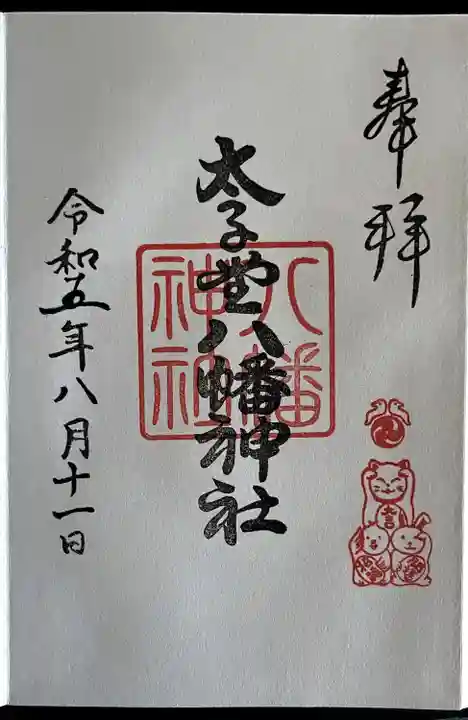 奉拝
太子堂八幡神社
八幡
神社
大吉
令和五年八月十一日